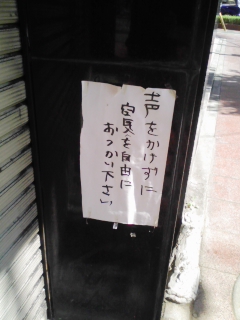 声をかけずに
空気を自由に
おつかい下さい